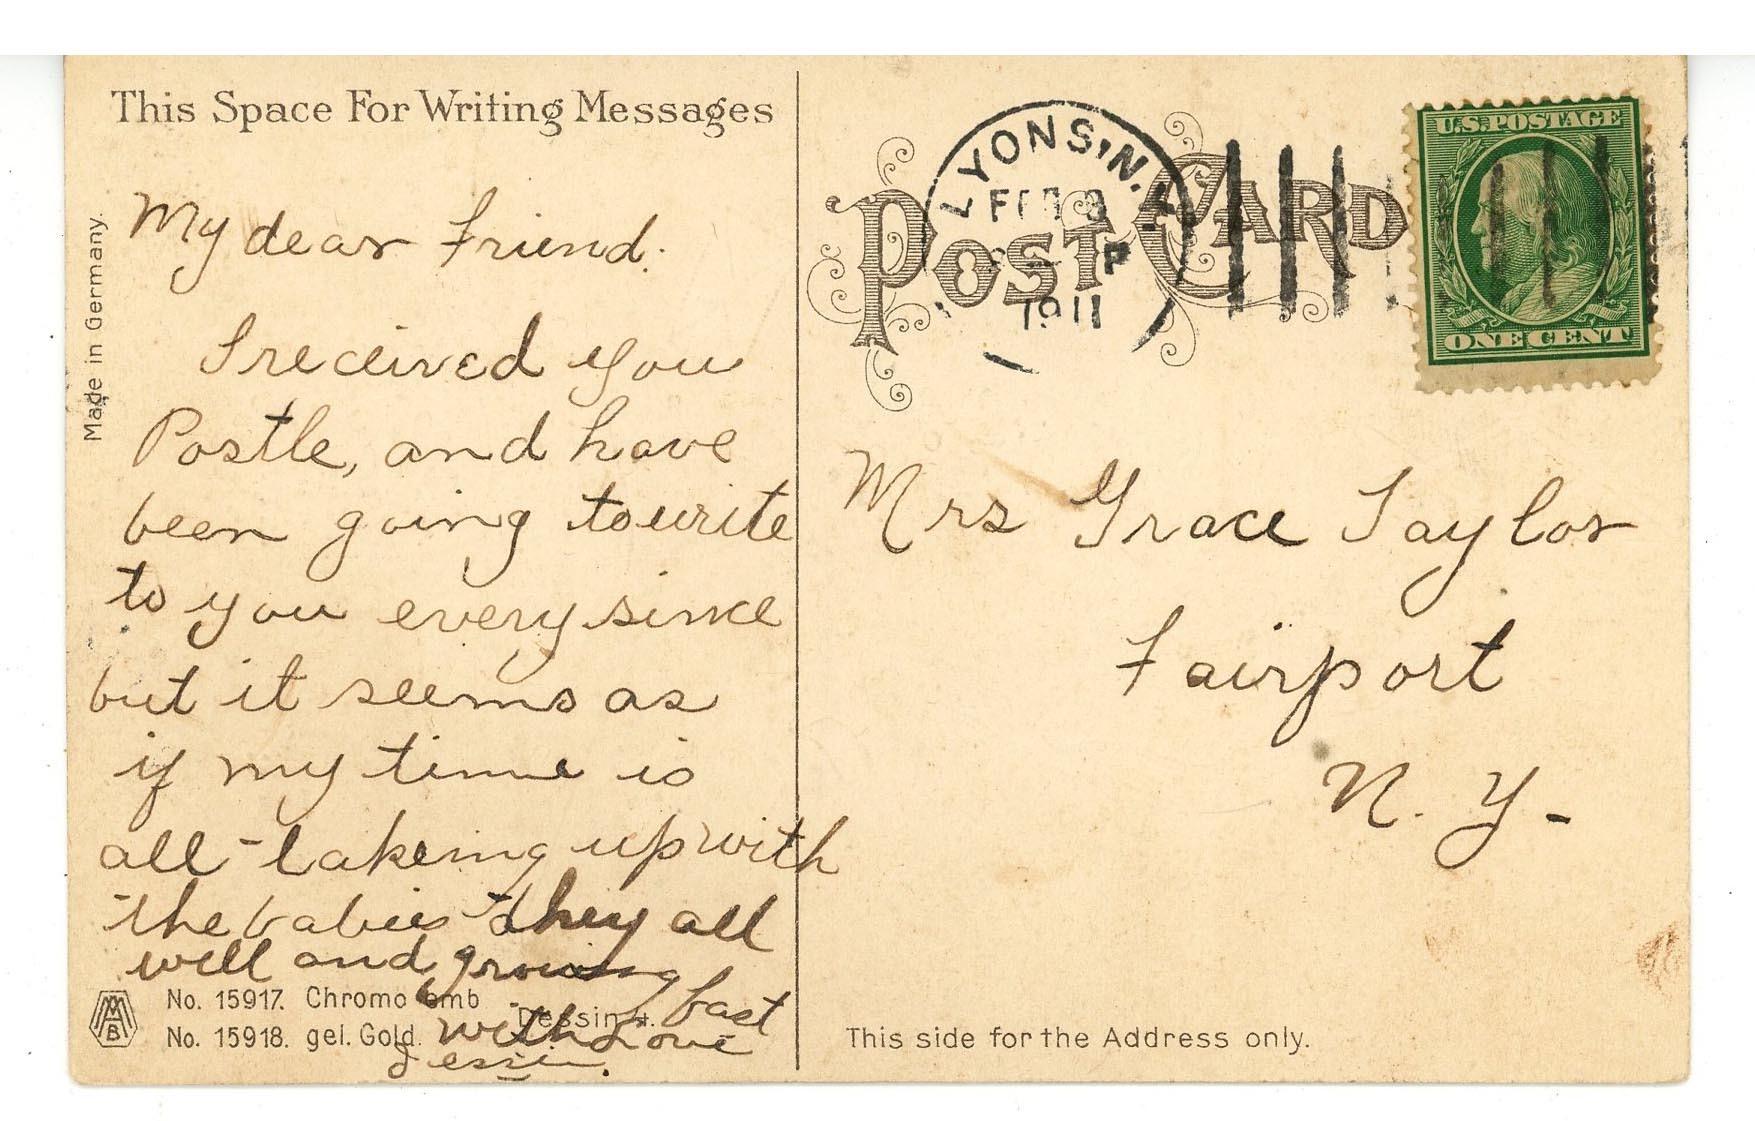 This Space For Writing Messages
Made in Germany.
My dear Friend.
I received you
Postle, and have
been going to write
to you every since
but it seems as
if my time is
all takeing up with
the babies they all
well and growing fast
with Love
Jessie.
No. 15917. Chromo emb
No. 15918. gel. Gold. Dessin 4.
MAB
POST CARD
LYONS, N.Y.
FEB
P
1911
U.S. POSTAGE
ONE CENT
Mrs Grace Taylor
Fairport
N. Y-
This side for the Address only.